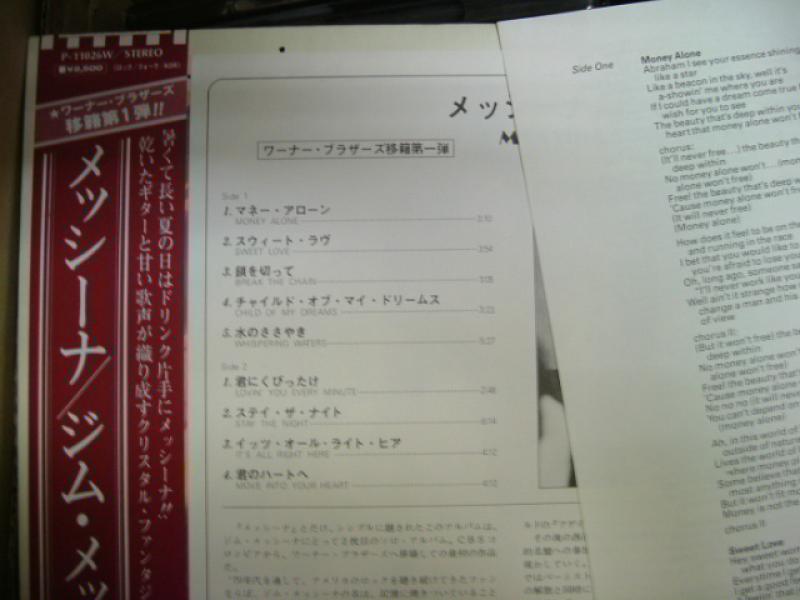 P-11026W/STEREO
¥2,500
★ワーナー・ブラザーズ
移籍第1弾!!
暑くて長い夏の日はドリンク片手にメッシーナ!!
乾いたギターと甘い歌声が織り成すクリスタル・ファンタジ
メッシーナ/ジム・メッ
メッシ
ワーナー・ブラザーズ移籍第一弾
Side 1
1. マネー・アローン 3:10
MONEY ALONE
2. スウィート・ラヴ 3:54
SWEET LOVE
3. 鎖を切って 3:05
BREAK THE CHAIN
4. チャイルド・オブ・マイ・ドリームス 3:23
CHILD OF MY DREAMS
5. 水のささやき 5:27
WHISPERING WATERS
Side 2
1. 君にくびったけ 2:48
LOVIN' YOU EVERY MINUTE
2. ステイ・ザ・ナイト 6:14
STAY THE NIGHT
3. イッツ・オール・ライト・ヒア 4:12
IT'S ALL RIGHT HERE
4. 君のハートへ 4:12
MOVE INTO YOUR HEART
Side One
Money Alone
Abraham I see your essence shining
like a star
Like a beacon in the sky, well it's
a-showin' me where you are
If I could have a dream come true
wish for you to see
The beauty that's deep within you
heart that money alone won't
chorus:
(It'll never free...) the beauty
deep within
No money alone won't... (mon
alone won't free)
Feel the beauty that's deep w
'Cause money alone won't fr
(It will never free)
(Money alone)
How does it feel to be on the
and running in the race
I bet that you would like to
you're afraid to lose you
Oh, long ago, someone sa
"I'll never work like you
Well ain't it strange how
change a man and his
of view
chorus II:
(But it won't free) the be
deep within
No money alone won
alone won't free)
Feel the beauty that's
'Cause money alone
No no no (it will neve
You can't depend on
(money alone)
Ah, in this world of
outside of nature
Lives the world of
where money
Some believe tha
most anything
But it won't fit m
Money is not the
chorus II
Sweet Love
Hey sweet wom
what you do
Everytime I get
I get a good fee